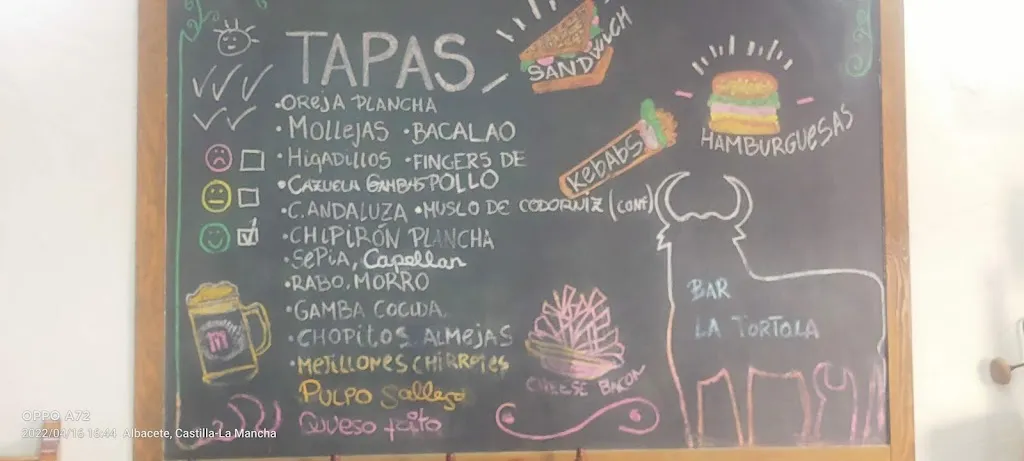 TAPAS
SANDWICH
HAMBURGUESAS
KEBABS
•OREJA PLANCHA
•MOLLEJAS •BACALAO
•HIGADILLOS •FINGERS DE
•CAZUELA GAMBAS POLLO
•C.ANDALUZA •MUSLO DE CODORNIZ (CONF)
•CHIPIRÓN PLANCHA
•SEPIA, Capellan
•RABO. MORRO
•GAMBA COCIDA
•CHOPITOS ALMEJAS
•MEJILLONES CHIRRETES
PULPO Gallego
Queso frito
CHEESE BACON
BAR
LA TORTOLA
m
OPPO A72
2022/04/16 16:44 Albacete, Castilla-La Mancha